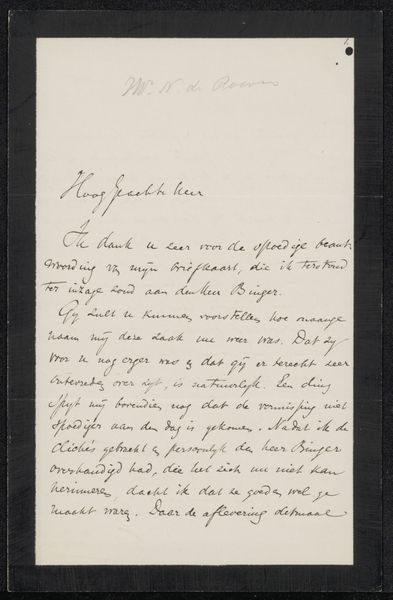 Mr. N. de Roever
Hoog Geachte Heer
Ik dank u zeer voor de spoedige beant-
woording van mijn briefkaart, die ik terstond
ter inzage zond aan den Heer Binger.
Gij zult u kunnen voorstellen hoe onaange
naam mij deze zaak nu weer was. Dat zij
voor u nog erger was en dat gij er terecht zeer
ontevreden over zijt, is natuurlijk. Een ding
spijt mij bovendien nog dat de vermissing niet
spoediger aan den dag is gekomen. Nadat ik de
clichés gebracht en persoonlijk den heer Binger
overhandigd had, die het zich nu niet kan
herinneren, dacht ik dat ze goed en wel ge
maakt waren. Daar de aflevering ditmaal